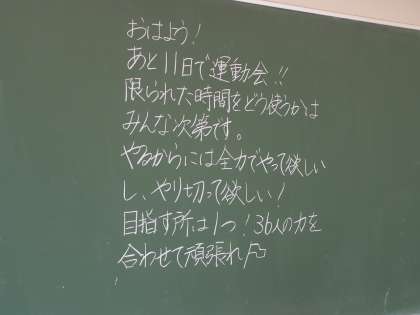 おはよう!
あと11日で運動会!!
限られた時間をどう使うかは
みんな次第です。
やるからには全力でやって欲しい
し、やり切って欲しい!
目指す所は1つ!36人の力を
合わせて頑張れ